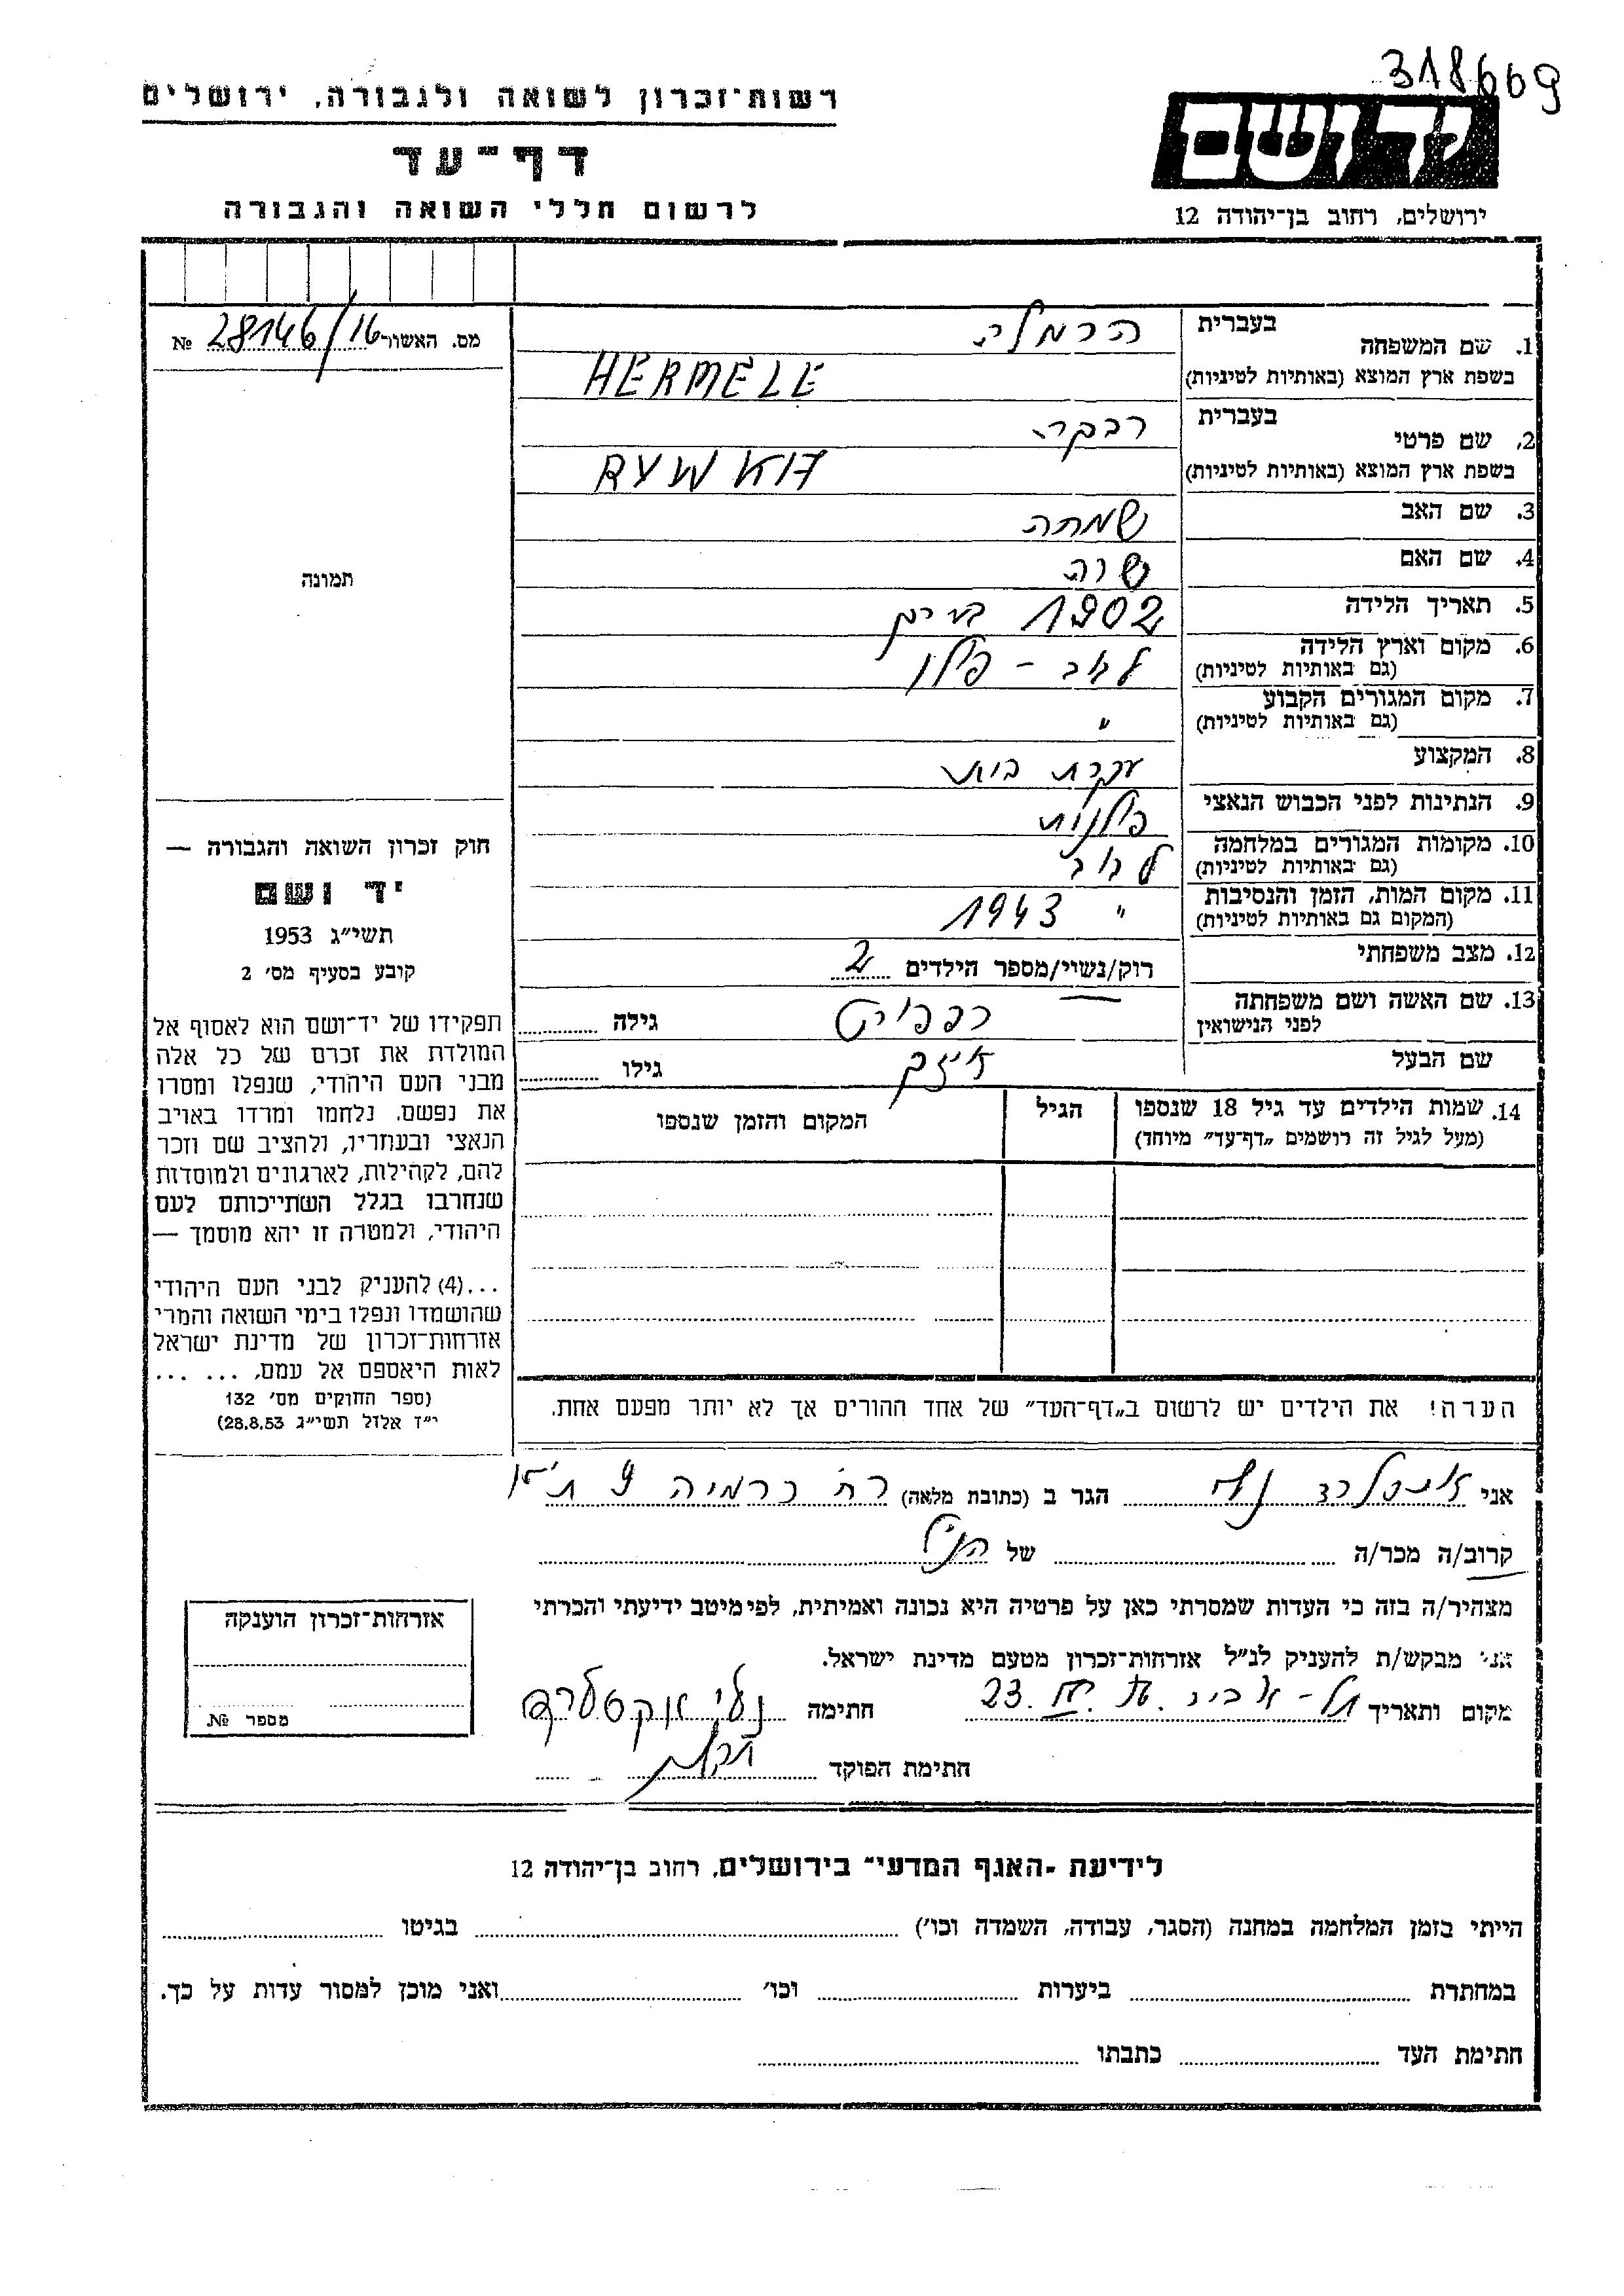 318609
רשות־זכרון לשואה ולגבורה, ירושלים
יד ושם
דף־עד
לרשום חללי השואה והגבורה
ירושלים, רחוב בן־יהודה 12
מס. האשור 16/28146 №
1. שם המשפחה בעברית הרמלה
בשפת ארץ המוצא (באותיות לטיניות) HERMELE
2. שם פרטי בעברית רבקה
בשפת ארץ המוצא (באותיות לטיניות) RYWKA
3. שם האב שמחה
4. שם האם שרה
5. תאריך הלידה 1902
6. מקום וארץ הלידה (גם באותיות לטיניות) לבוב - פולין
7. מקום המגורים הקבוע (גם באותיות לטיניות) "
8. המקצוע עקרת בית
9. הנתינות לפני הכבוש הנאצי פולנית
10. מקומות המגורים במלחמה (גם באותיות לטיניות) לבוב
11. מקום המות, הזמן והנסיבות (המקום גם באותיות לטיניות) " 1943
12. מצב משפחתי רוק/נשוי/מספר הילדים 2
13. שם האשה ושם משפחתה לפני הנישואין רפפורט גילה
שם הבעל גילו
14. שמות הילדים עד גיל 18 שנספו הגיל המקום והזמן שנספו
(מעל לגיל זה רושמים „דף־עד" מיוחד)
תמונה
חוק זכרון השואה והגבורה —
יד ושם
תשי"ג 1953
קובע בסעיף מס' 2
תפקידו של יד־ושם הוא לאסוף אל
המולדת את זכרם של כל אלה
מבני העם היהודי, שנפלו ומסרו
את נפשם, נלחמו ומרדו באויב
הנאצי ובעוזריו, ולהציב שם וזכר
להם, לקהילות, לארגונים ולמוסדות
שנחרבו בגלל השתייכותם לעם
היהודי, ולמטרה זו יהא מוסמך —
...(4) להעניק לבני העם היהודי
שהושמדו ונפלו בימי השואה והמרי
אזרחות־זכרון של מדינת ישראל
לאות היאספם אל עמם. ... ...
(ספר החוקים מס' 132
י"ד אלול תשי"ג 28.8.53)
הערה! את הילדים יש לרשום ב„דף־העד" של אחד ההורים אך לא יותר מפעם אחת.
אני הגר ב (כתובת מלאה) רח' נרמיה 9 ת"א
קרוב/ה מכר/ה של הנ"ל
מצהיר/ה בזה כי העדות שמסרתי כאן על פרטיה היא נכונה ואמיתית, לפי מיטב ידיעתי והכרתי
אני מבקש/ת להעניק לנ"ל אזרחות־זכרון מטעם מדינת ישראל.
מקום ותאריך תל-אביב 23. חתימה
חתימת הפוקד
אזרחות־זכרון הוענקה
מספר №
לידיעת „האגף המדעי" בירושלים, רחוב בן־יהודה 12
הייתי בזמן המלחמה במחנה (הסגר, עבודה, השמדה וכו') בגיטו
במחתרת ביערות וכו' ואני מוכן למסור עדות על כך.
חתימת העד כתבתו